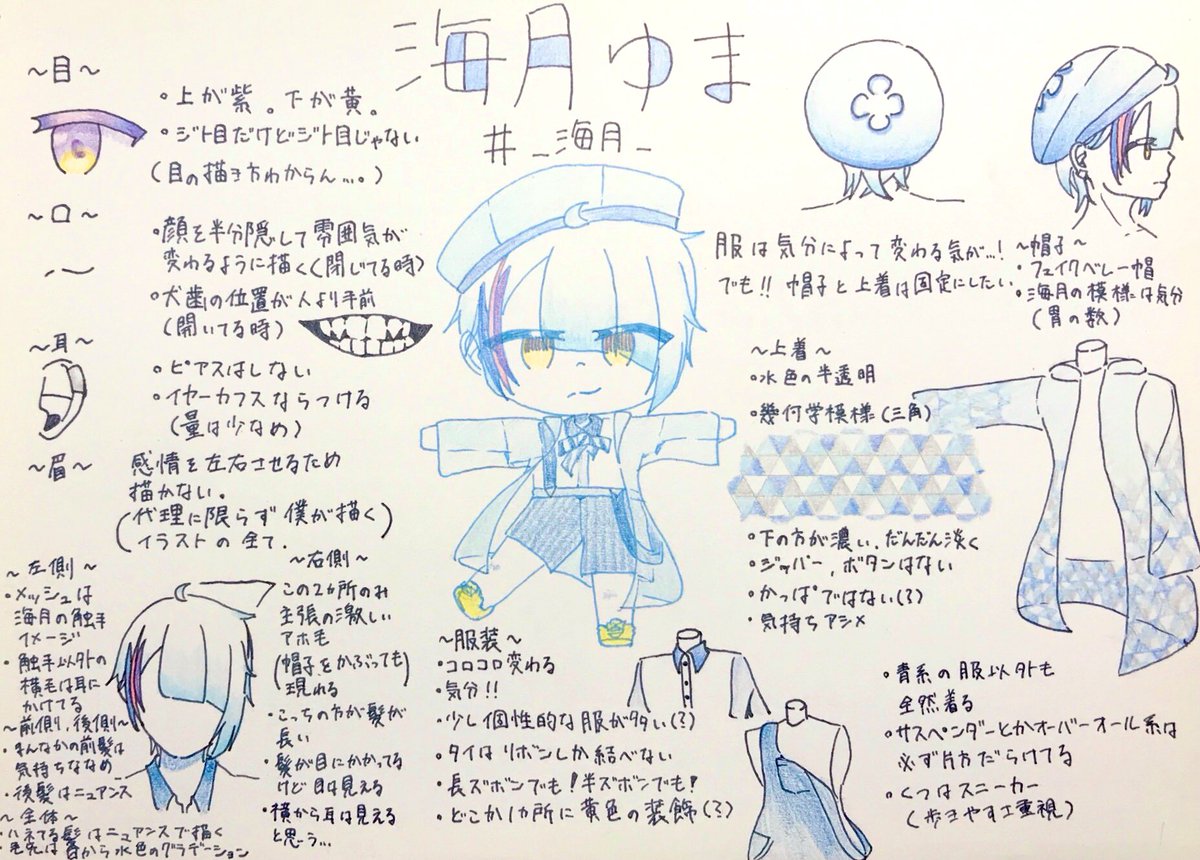 海月ゆま
#_海月_
～目～
・上が紫。下が黄。
・ジト目だけどジト目じゃない
(目の描き方わからん…。)
～口～
・顔を半分隠して雰囲気が
変わるように描く(閉じてる時)
・犬歯の位置が人より手前
(開いてる時)
～耳～
・ピアスはしない
・イヤーカフスならつける
(量は少なめ)
～眉～
感情を左右させるため
描かない。
(代理に限らず僕が描く
イラストの全て.)
～左側～
・メッシュは
海月の触手
イメージ
・触手以外の
横毛は耳に
かけてる
～前側,後側～
・まんなかの前髪は
気持ちななめ
・後髪はニュアンス
～全体～
・ハネてる髪はニュアンスで描く
・毛先は白から水色のグラデーション
～右側～
この2ヵ所のみ
主張の激しい
アホ毛
(帽子をかぶっても)
現れる
・こっちの方が髪が
長い
・髪が目にかかってる
けど目は見える
・横から耳は見える
と思う…
服は気分によって変わる気が…!
でも!!帽子と上着は固定にしたい
～帽子～
・フェイクベレー帽
・海月の模様は気分
(胃の数)
～上着～
・水色の半透明
・幾何学模様(三角)
・下の方が濃い.だんだん淡く
・ジッパー,ボタンはない
・かっぱではない(?)
・気持ちアシメ
～服装～
・コロコロ変わる
・気分!!
・少し個性的な服が多い(?)
・タイはリボンしか結べない
・長ズボンでも!半ズボンでも!
・どこか1ヵ所に黄色の装飾(?)
・青系の服以外も
全然着る
・サスペンダーとかオーバーオール系は
必ず片方だらけてる
・くつはスニーカー
(歩きやすさ重視)